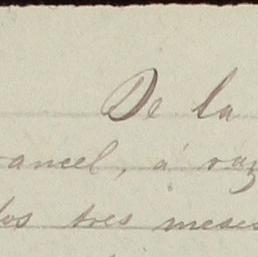 De la
ancel, á raz
los tres meses